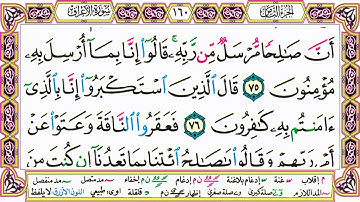 سورة الأعراف ١٦٠ الجزء الثامن
أَنَّ صَٰلِحًا مُّرْسَلٌ مِّن رَّبِّهِۦ ۚ قَالُوٓا۟ إِنَّا بِمَآ أُرْسِلَ بِهِۦ
مُؤْمِنُونَ ٧٥ قَالَ ٱلَّذِينَ ٱسْتَكْبَرُوٓا۟ إِنَّا بِٱلَّذِىٓ
ءَامَنتُم بِهِۦ كَٰفِرُونَ ٧٦ فَعَقَرُوا۟ ٱلنَّاقَةَ وَعَتَوْا۟ عَنْ
أَمْرِ رَبِّهِمْ وَقَالُوا۟ يَٰصَٰلِحُ ٱئْتِنَا بِمَا تَعِدُنَآ إِن كُنتَ مِنَ